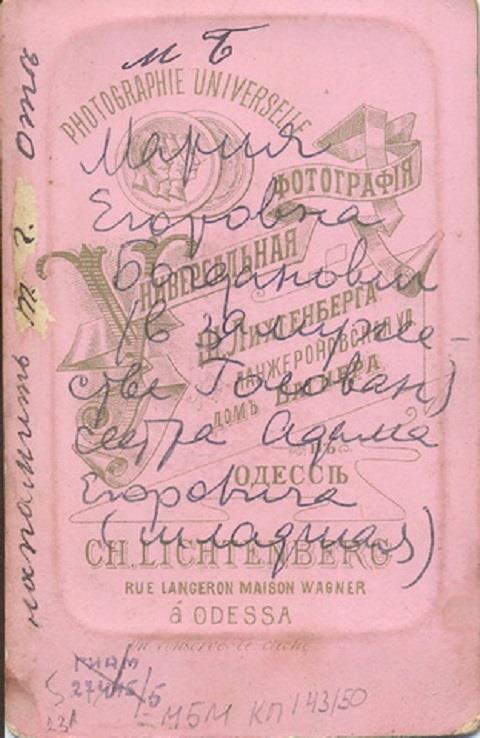 м Б
PHOTOGRAPHIE UNIVERSELLE
ФОТОГРАФІЯ
УНИВЕРСАЛЬНАЯ
Ш. ЛИХТЕНБЕРГА
ЛАНЖЕРОНОВСКАЯ УЛ
ДОМЪ ВАГНЕРА
ВЪ
ОДЕССѢ
CH. LICHTENBERG
RUE LANGERON MAISON WAGNER
á ODESSA
on conserve le cliché
Мария
Егоровна
Богданович
(в замуже-
стве Голован)
сестра Адама
Егоровича
(младшая)
на память т г. отъ
ГИАМ
27415/5
23А
МБМ КП 143/50